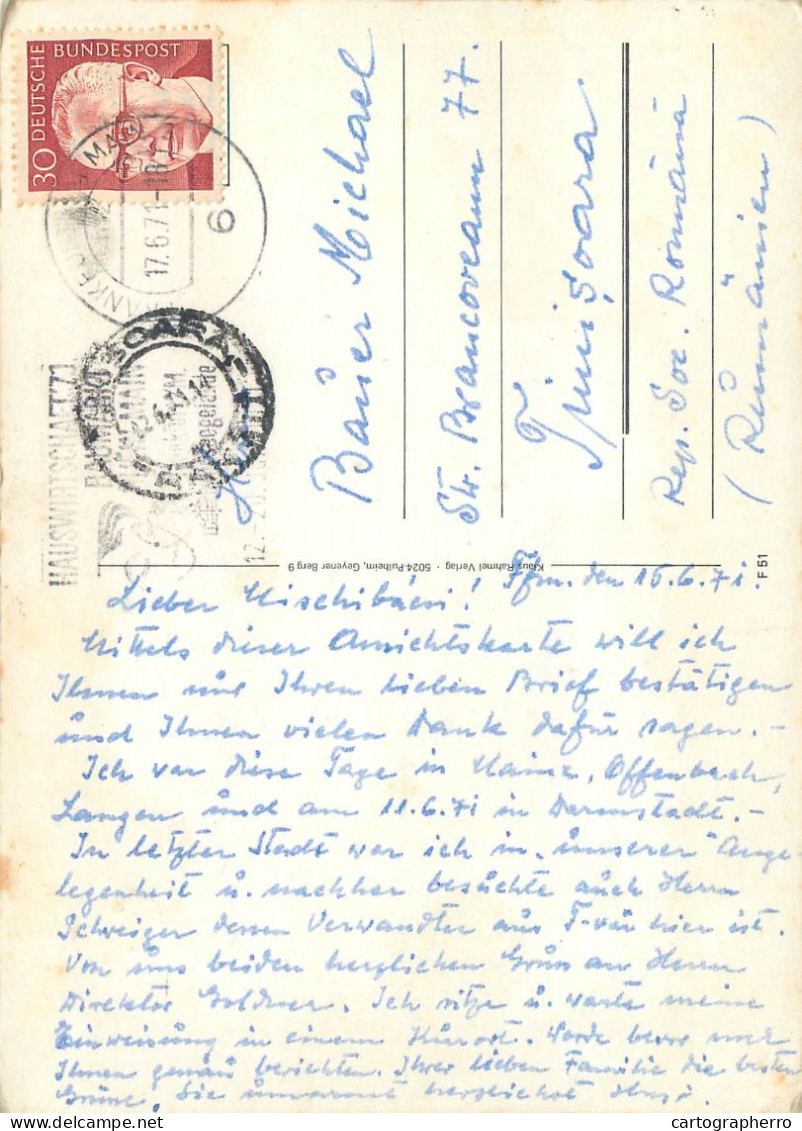 DEUTSCHE BUNDESPOST
30
17.6.71-18
6
HAUSWIRTSCHAFT 71
Herrn
Bauer Michael
Str. Brancoveanu 77.
Timișoara
Rep. Soc. Română
(Rumänien)
Klaus Rahmel Verlag · 5024 Pulheim, Geyener Berg 9
F 51
Ffm. den 16.6.71.
Lieber Mischibácsi!
Mittels dieser Ansichtskarte will ich
Ihnen nur Ihren lieben Brief bestätigen
und Ihnen vielen Dank dafür sagen.-
Ich war diese Tage in Mainz, Offenbach,
Langen und am 11.6.71 in Darmstadt.-
In letzter Stadt war ich in "unserer" Ange-
legenheit u. nachher besuchte auch Herrn
Schweiger dessen Verwandter aus T-vár hier ist.
Von uns beiden herzlichen Gruss an Herrn
Direktor. Ich sitze u. warte meine
Einweisung in einem Kurort. Werde
Ihnen genau berichten. Ihrer lieben Familie die besten
Grüsse, Sie umarmt herzlichst
cartographerro